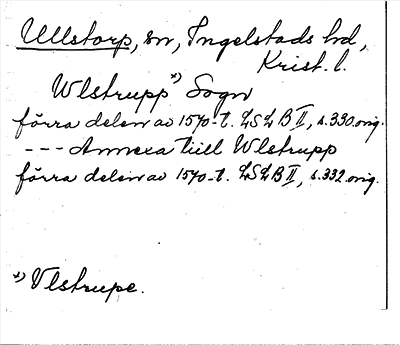 Ullstorp, sn, Ingelstads hd,
Krist. l.
Wlstrupp *) Sogn
förra delen av 1570-t. LSLB II, s. 330 orig.
--- Annexa tiill Wlstrupp
förra delen av 1570-t. LSLB II, s. 332 orig.
*) Vlstrupe.